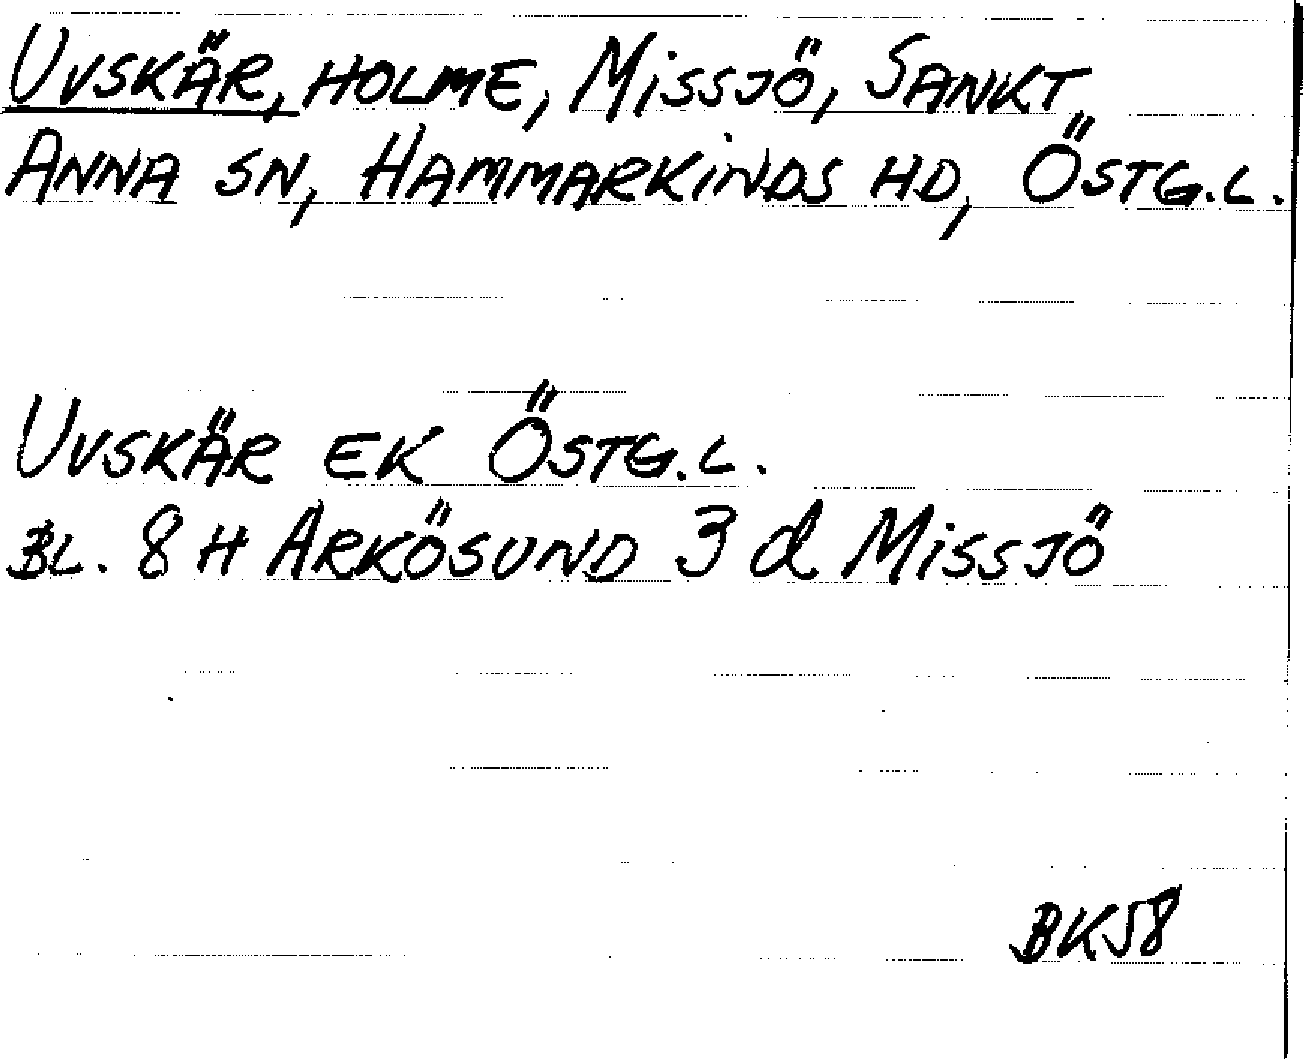 UVSKÄR, HOLME, MISSJÖ, SANKT
ANNA SN, HAMMARKINDS HD, ÖSTG.L.
UVSKÄR EK ÖSTG.L.
BL. 8 H ARKÖSUND 3 d MISSJÖ
BK58